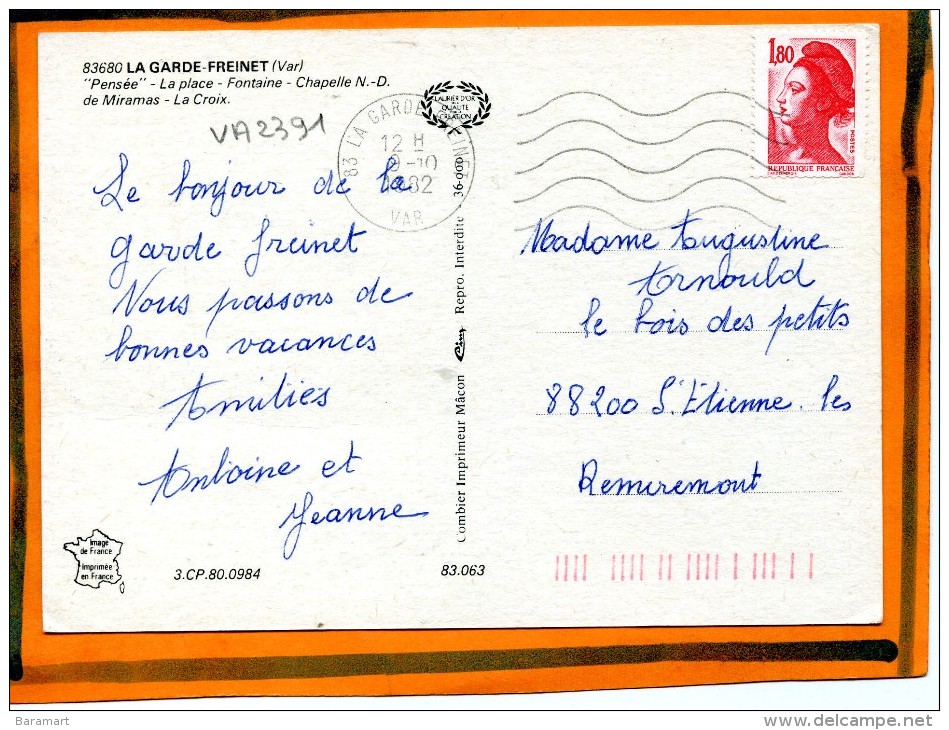 83680 LA GARDE-FREINET (Var)
"Pensée" - La place - Fontaine - Chapelle N.-D.
de Miramas - La Croix.
VA2391
LAURIER D'OR
QUALITÉ
CRÉATION
83 LA GARDE FREINET
12 H
9-10
1982
VAR
1,80
POSTES
REPUBLIQUE FRANÇAISE
Le bonjour de la
garde freinet
Nous passons de
bonnes vacances
Amitiés
Antoine et
Jeanne
Madame Augustine
Arnould
le bois des petits
88200 St Etienne les
Remiremont
Combier Imprimeur Mâcon Cim Repro. Interdite - 36-000
Image
de France
Imprimée
en France
3.CP.80.0984
83.063
Baramart
www.delcampe.net